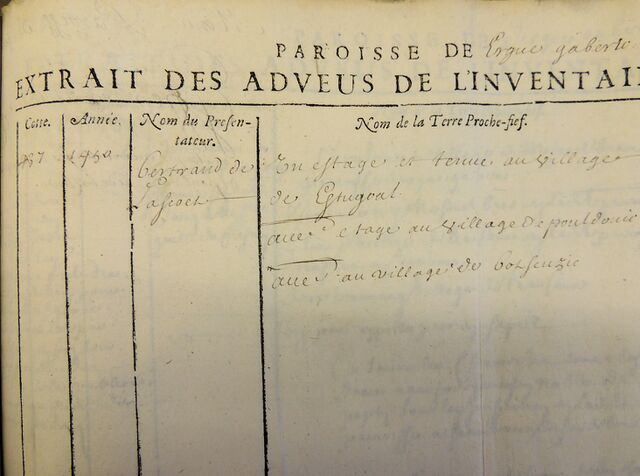 PAROISSE DE Ergue gaberic
EXTRAIT DES ADVEUS DE L'INVENTAI
Cotte. Année. Nom du Presen-tateur. Nom de la Terre Proche-fief.
Bertrand de Lascoet
Un estage et tenue au village
de
autre estage au village de pouldouic
autre au village de botsenzic